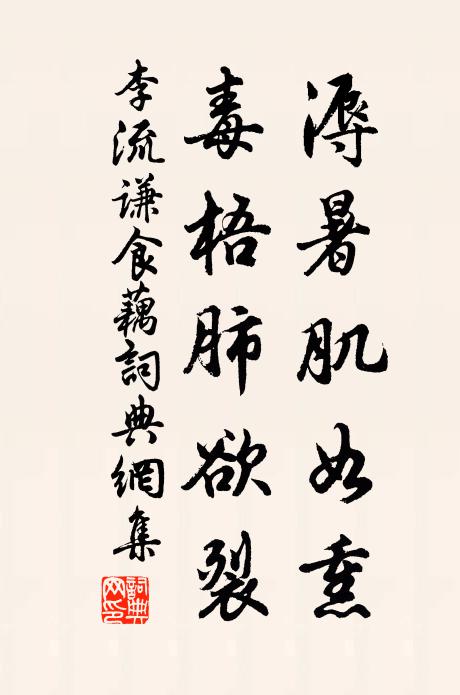 溽暑肌如熏
毒梧肺欲裂
李流谦食藕詞典網集
詞典網印